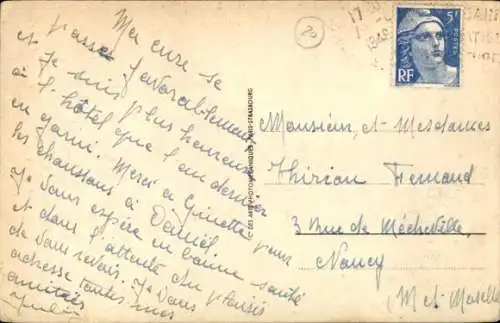 Ma cure se
passe favorablement
et je suis plus heureuse
à l'hôtel que l'an dernier
en garni. Merci à Ginette pour
les chaussons à Daniel
Je vous espère en bonne santé
et dans l'attente du plaisir
de vous revoir. Je vous
adresse toutes mes
amitiés
17
1948
5F
RF
CIE DES ARTS PHOTOMÉCANIQUES PARIS-STRASBOURG
Monsieur et Mesdames
Thirion Fernand
3 Rue de Méchéville
Nancy
(M et Moselle